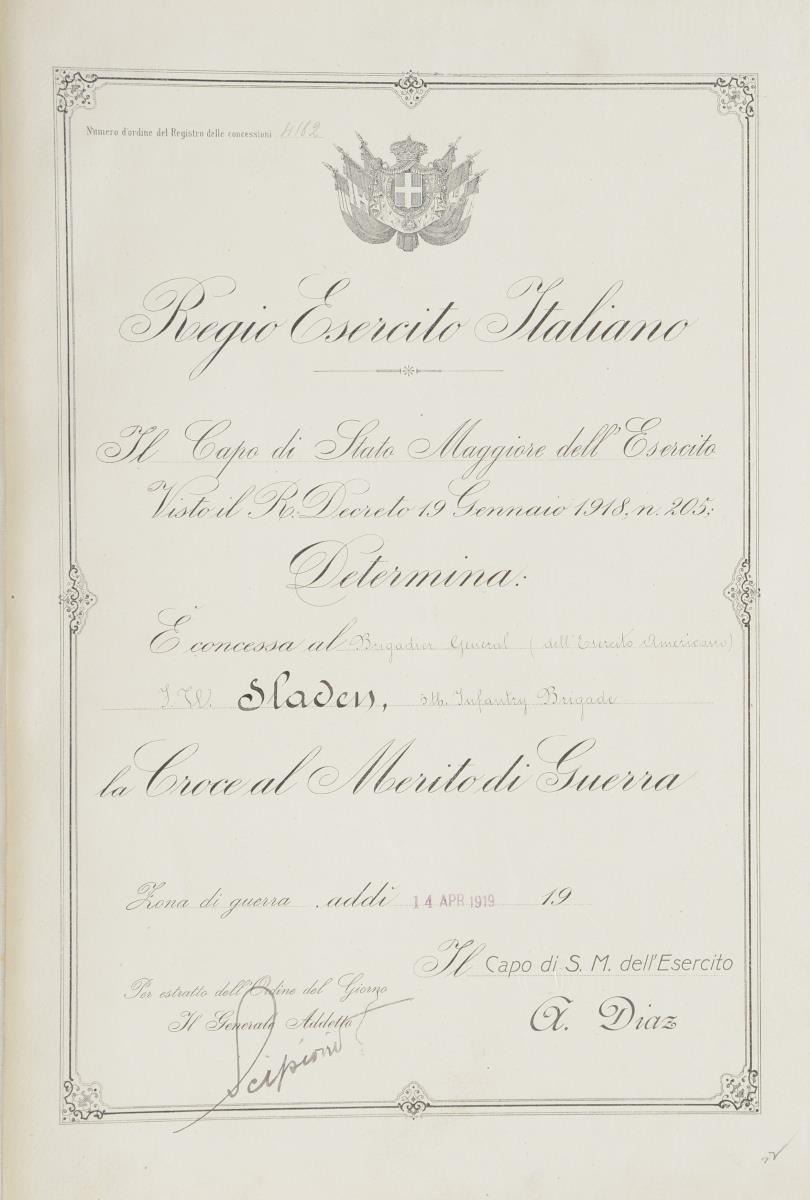 Numero d'ordine del Registro delle concessioni 4162
Regio Esercito Italiano
Il Capo di Stato Maggiore dell'Esercito
Visto il R: Decreto 19 Gennaio 1918, n. 205:
Determina:
È concessa al Brigadier General (dell'Esercito Americano)
F. W. Sladen, 5th. Infantry Brigade
la Croce al Merito di Guerra
Zona di guerra, addì 14 APR 1919 19
Il Capo di S. M. dell'Esercito
A. Diaz
Per estratto dell'Ordine del Giorno
Il Generale Addetto
Scipioni